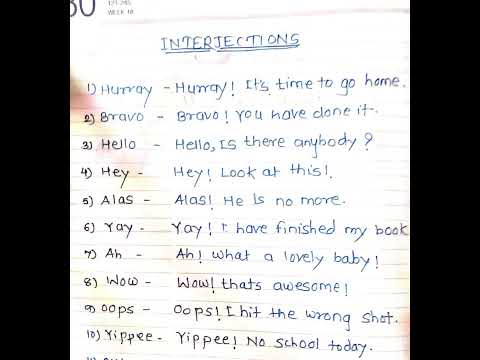 121-245
WEEK 18
INTERJECTIONS
1) Hurray - Hurray! It's time to go home.
2) Bravo - Bravo! You have done it.
3) Hello - Hello, Is there anybody?
4) Hey - Hey! Look at this!.
5) Alas - Alas! He is no more.
6) Yay - Yay! I have finished my book
7) Ah - Ah! What a lovely baby!
8) Wow - Wow! thats awesome!
9) Oops - Oops! I hit the wrong shot.
10) Yippee - Yippee! No school today.